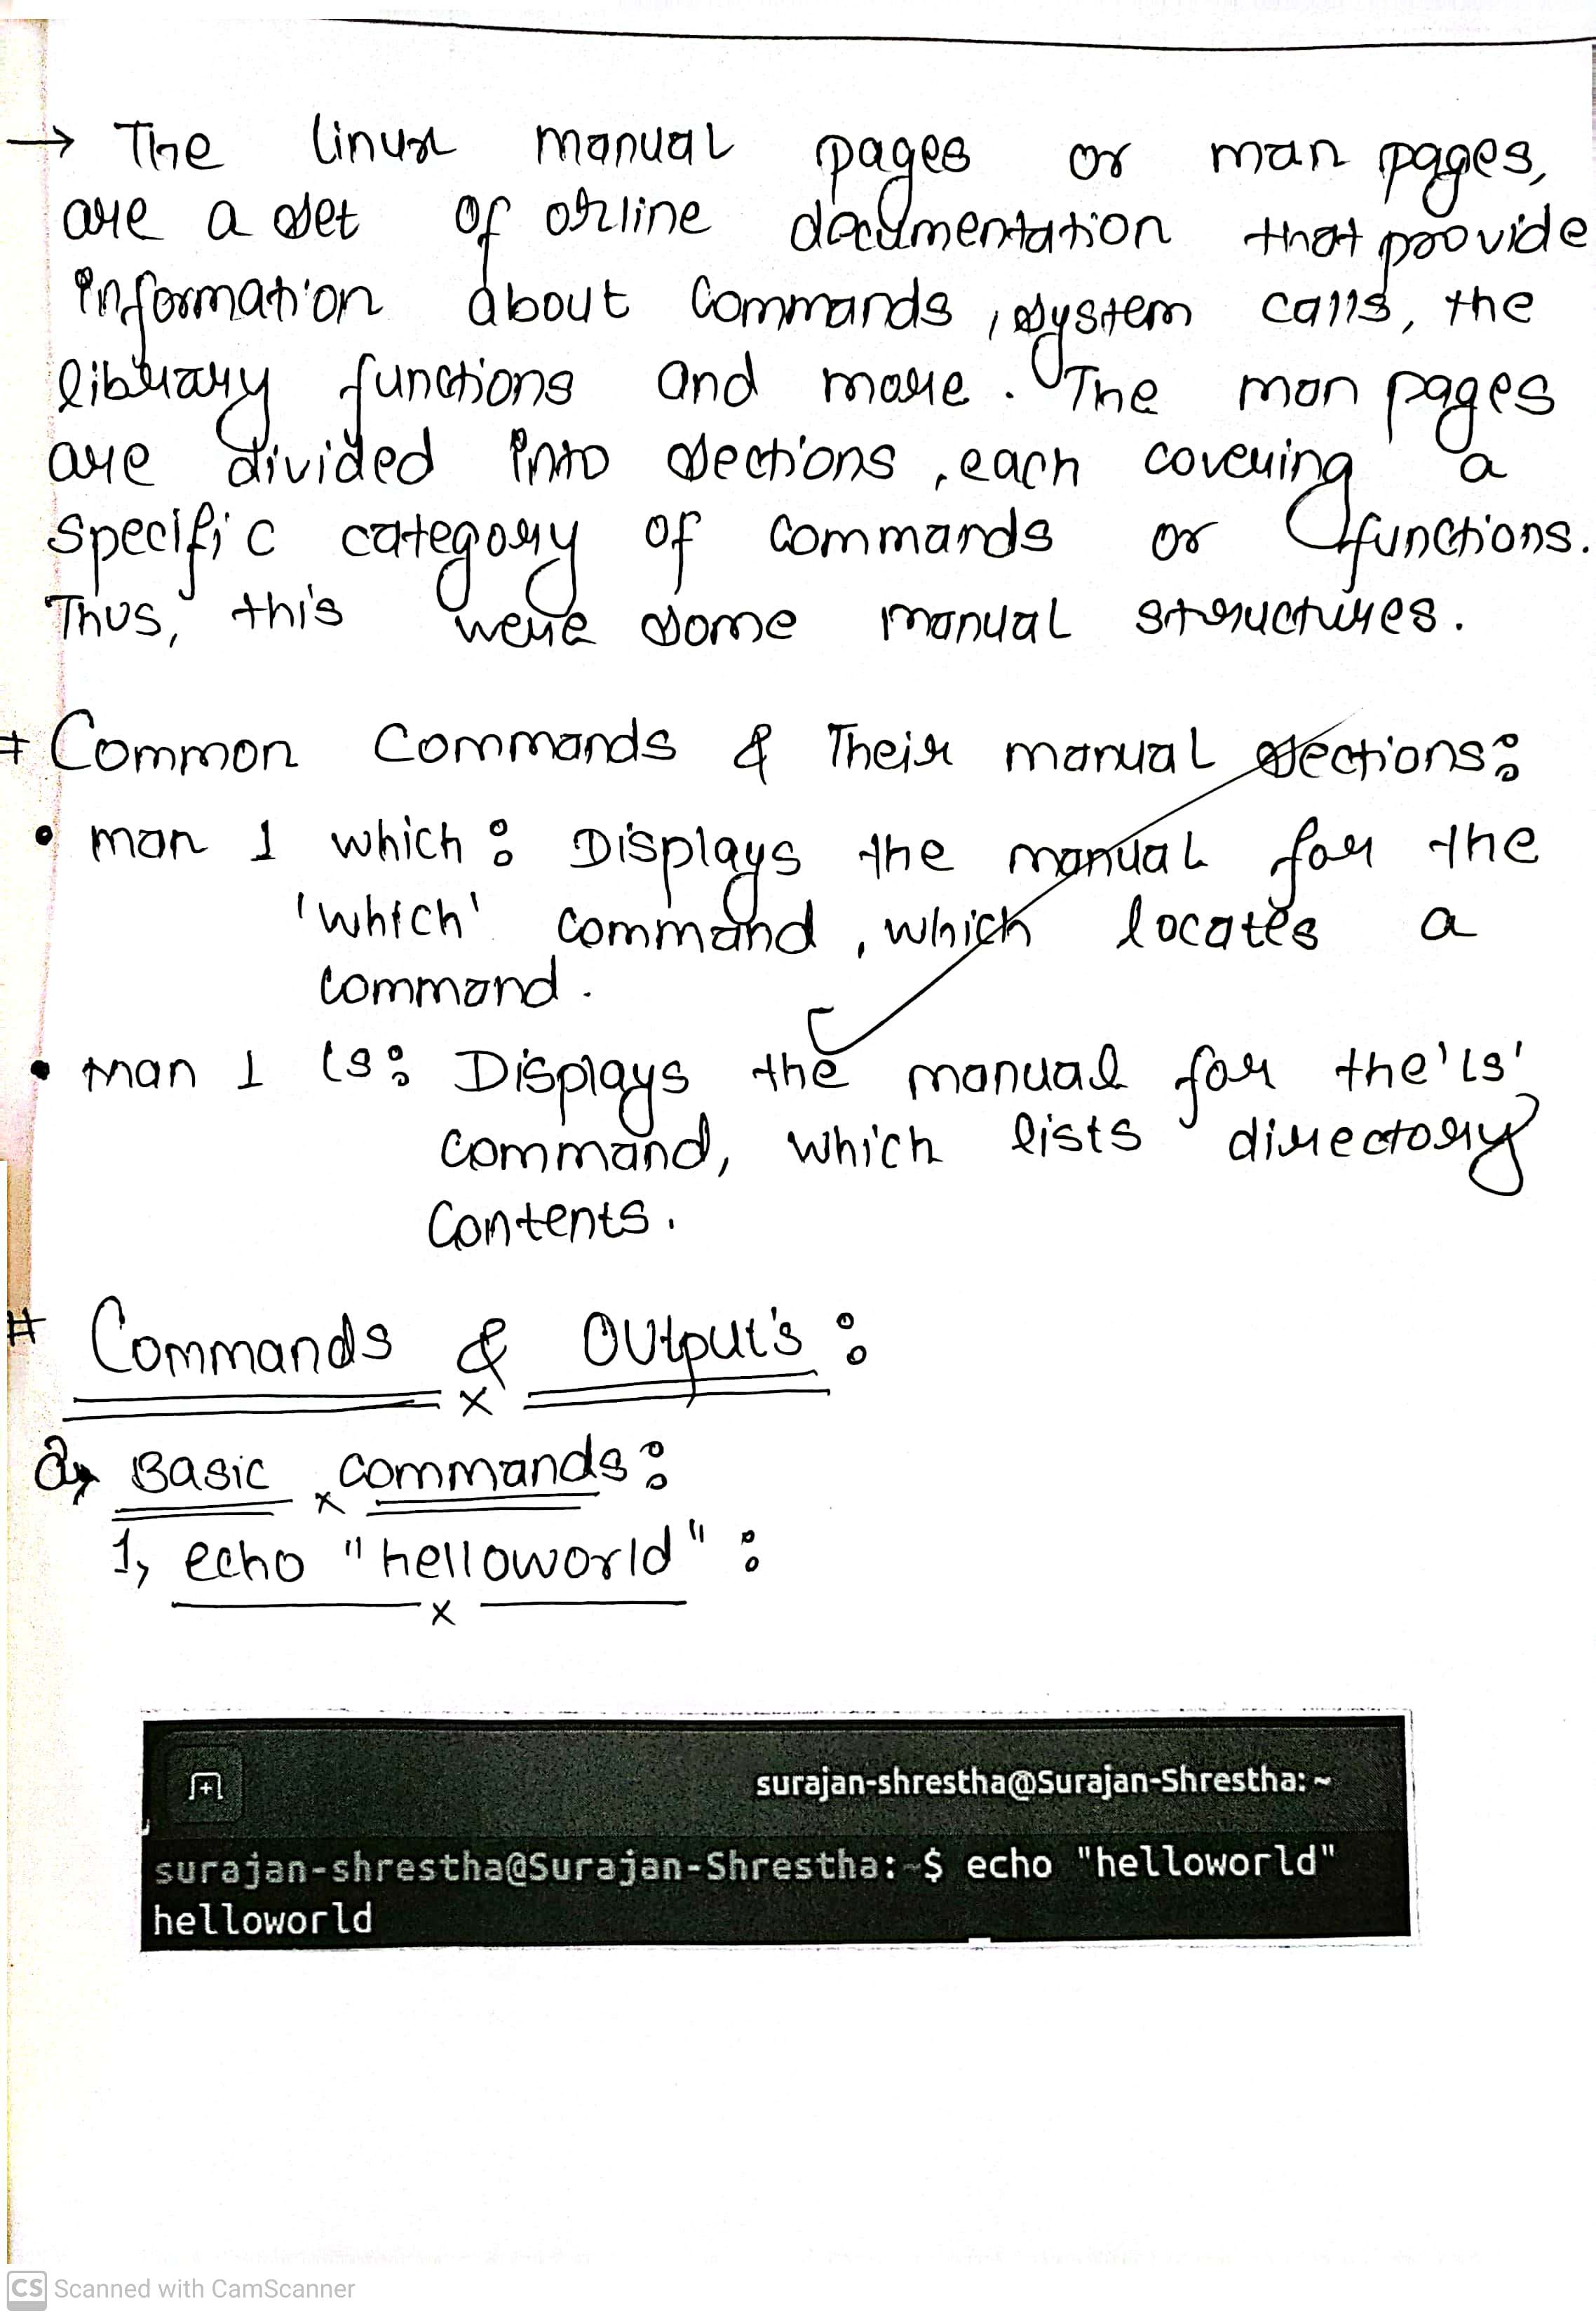 → The linux manual pages or man pages,
are a set of online documentation that provide
information about commands, system calls, the
library functions and more. The man pages
are divided into sections, each covering a
specific category of commands or functions.
Thus, this were some manual structures.
# Common Commands & Their manual sections:
• man 1 which: Displays the manual for the
'which' command, which locates a
command.
• man 1 ls: Displays the manual for the 'ls'
command, which lists directory
contents.
# Commands & Output's:
a, Basic commands:
1, echo "helloworld":
surajan-shrestha@Surajan-Shrestha: ~
surajan-shrestha@Surajan-Shrestha:~$ echo "helloworld"
helloworld
CS Scanned with CamScanner